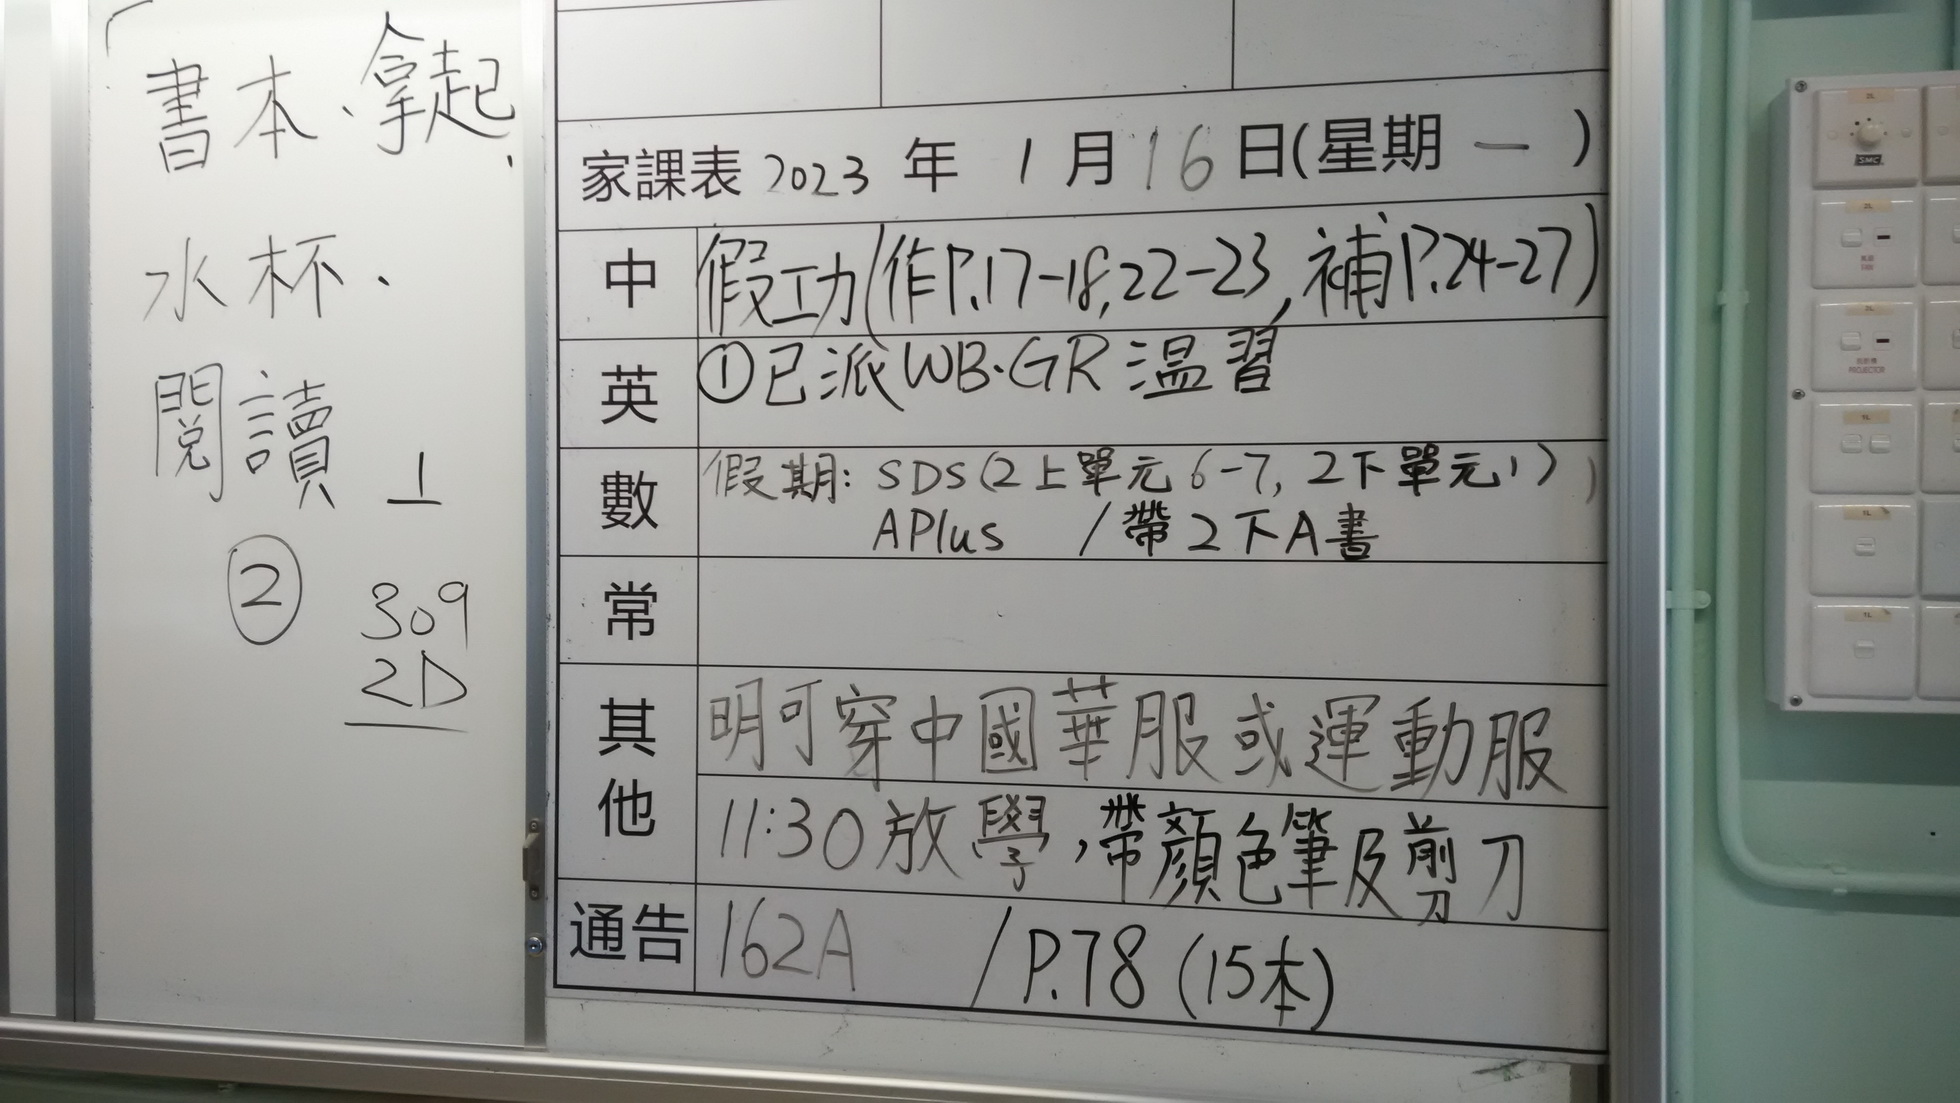 書本、拿起,
水杯、
閱讀 1
② 309
2D
家課表 2023 年 1 月 16 日(星期 一 )
中 假功(作P.17-18,22-23, 補P.24-27)
英 ①已派WB.GR 溫習
數 假期: SDS(2上單元6-7, 2下單元1)
APlus / 帶2下A書
常
其他 明可穿中國華服或運動服
11:30放學,帶顏色筆及剪刀
通告 162A / P.78 (15本)
SMC
PROJECTOR